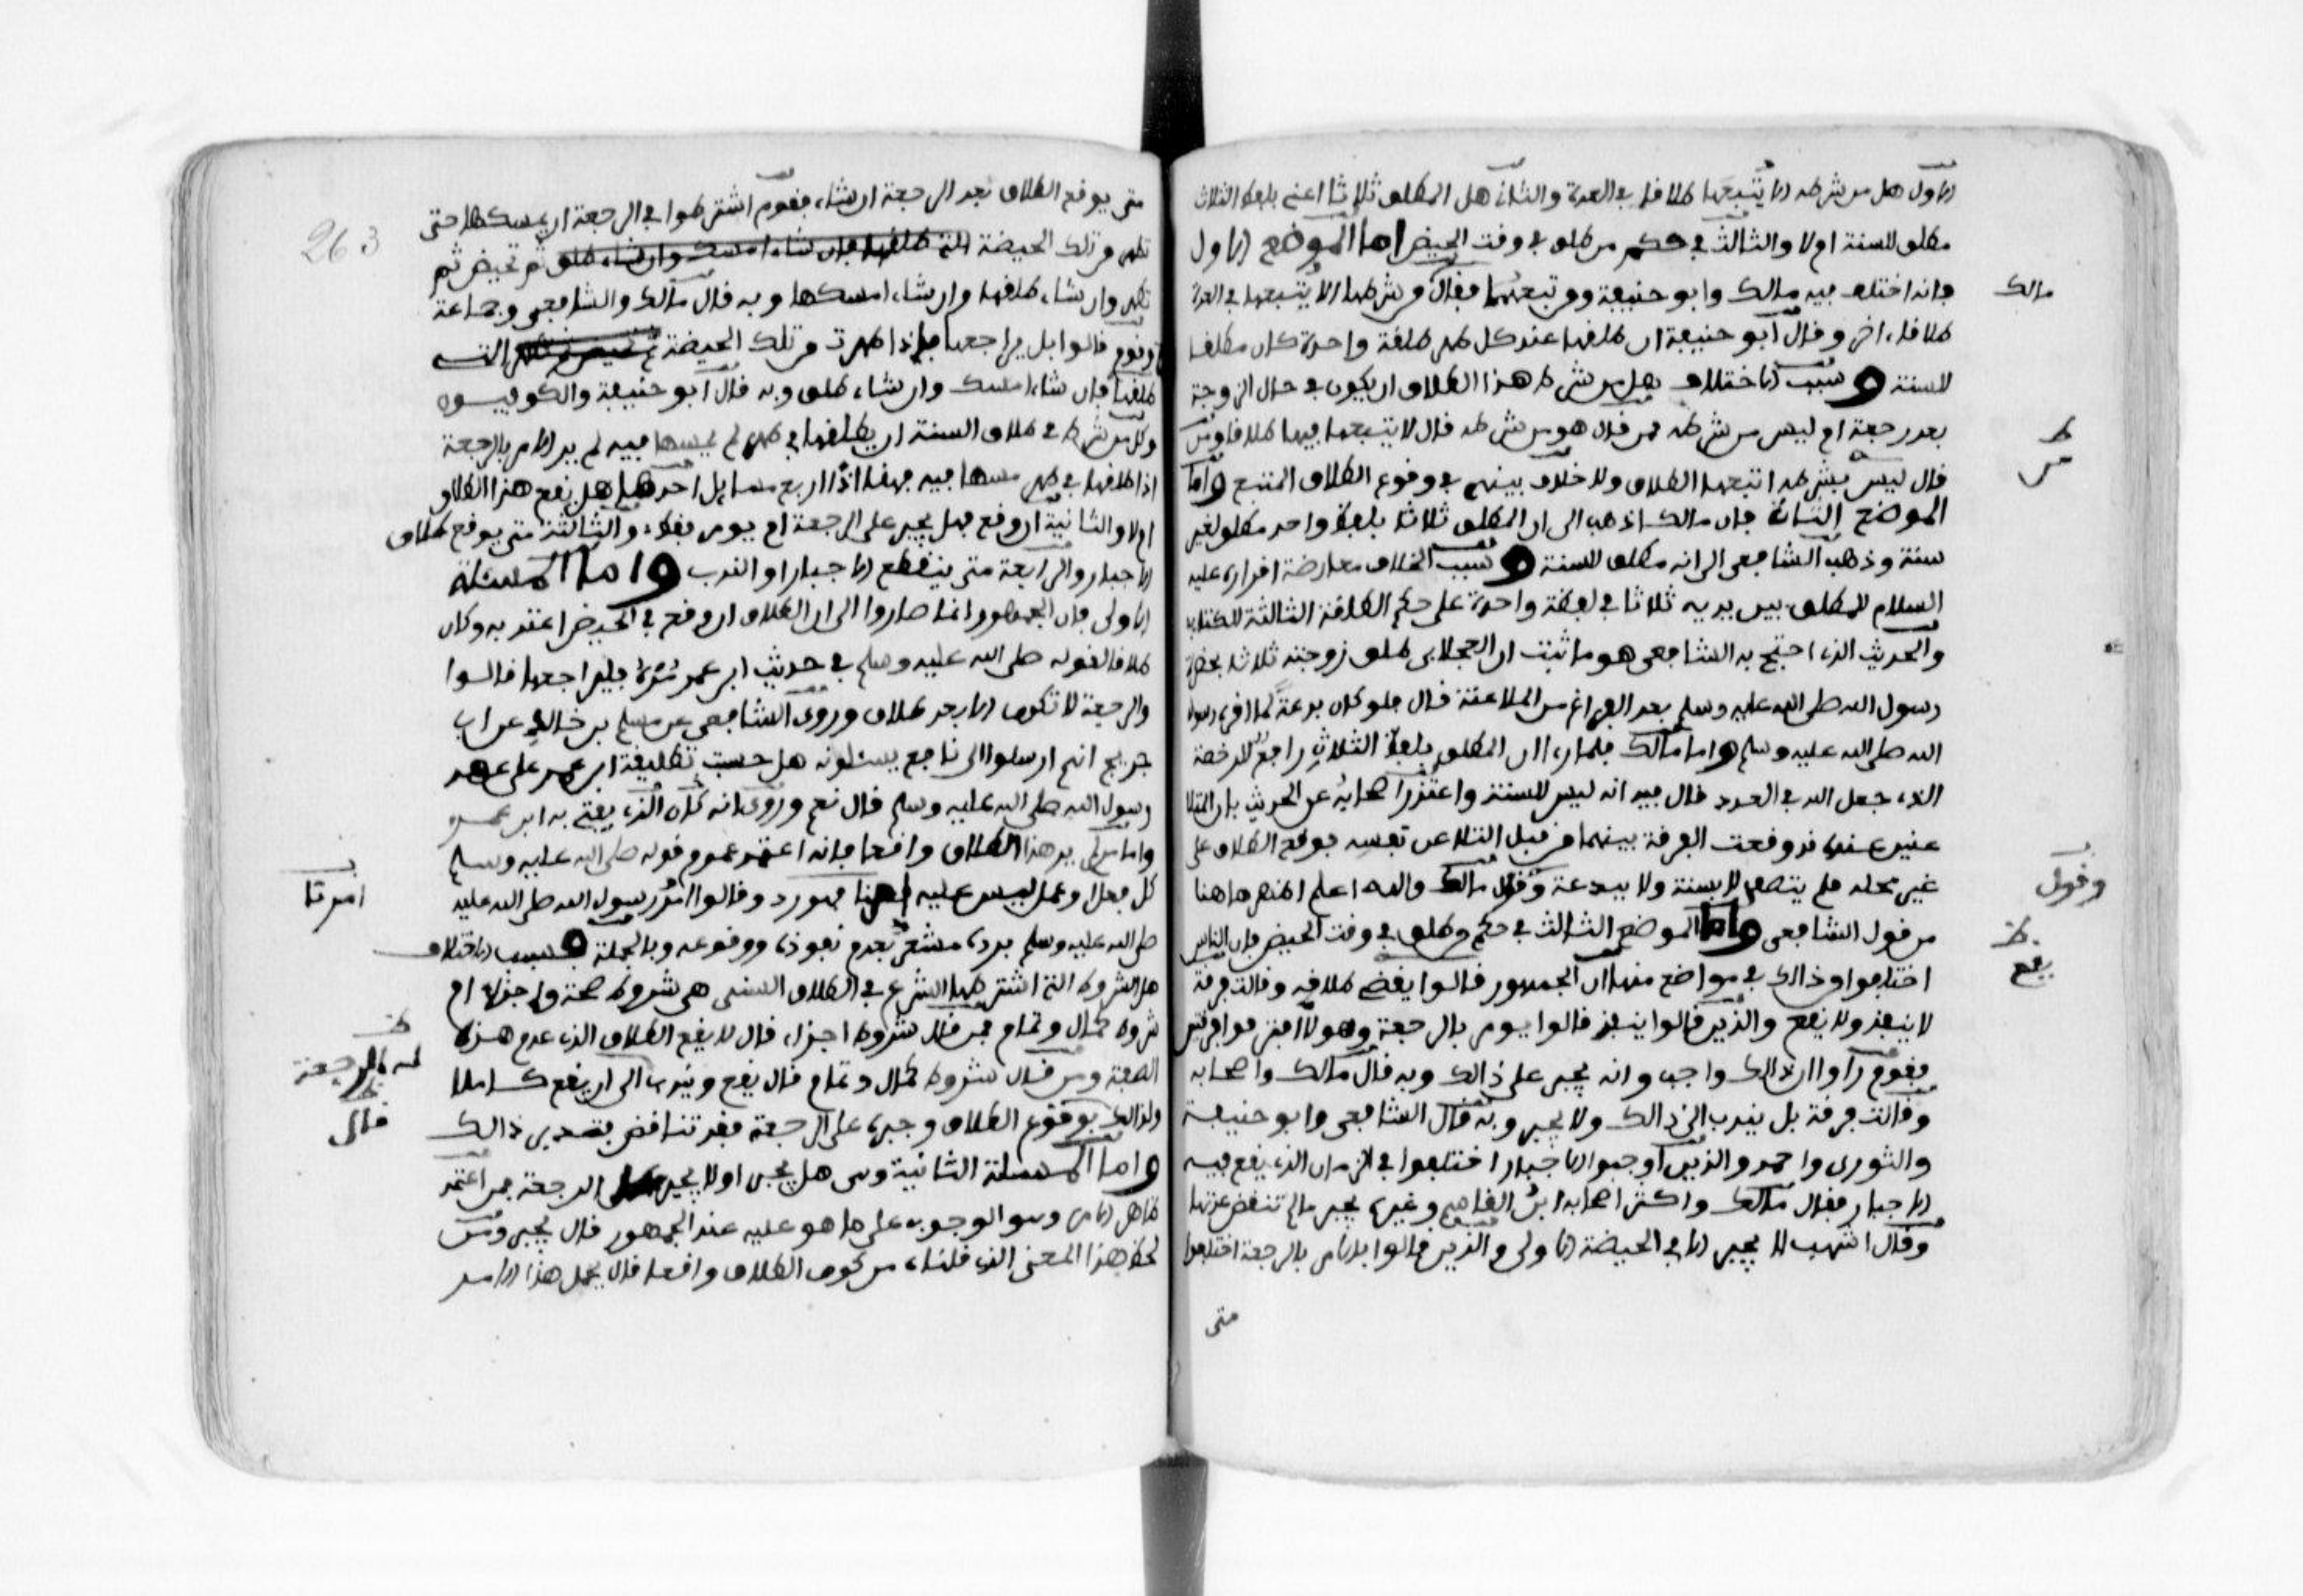 الاول هل من شرطه الا يتبعها طلاقا في العدة والثاني هل المطلق ثلاثا اعني بلفظ الثلاث
مطلق للسنة او لا والثالث في حكم من طلق في وقت الحيض اما الموضع الاول
فانه اختلف فيه مالك وابو حنيفة ومن تبعهما فقال من شرطها الا يتبعها في العدة
مالك
طلاقا اخر وقال ابو حنيفة ان طلقها عند كل طهر طلقة واحدة كان مطلقا
للسنة وسبب الاختلاف هل من شرط هذا الطلاق ان يكون في حال الزوجة
بعد رجعة ام ليس من شرطه فمن قال هو من شرطه قال لا يتبعها فيها طلاقا ومن
قال ليس بشرطه اتبعها الطلاق ولا خلاف بينهم في وقوع الطلاق المتبع واما
الموضع الثاني فان مالك اذهب الى ان المطلق ثلاثا بلفظ واحد مطلق لغير
سنة وذهب الشافعي الى انه مطلق للسنة وسبب الخلاف معارضة اقراره عليه
السلام للمطلق بين يديه ثلاثا في لفظة واحدة على حكم الطلقة الثالثة للكتاب
والحديث الذي احتج به الشافعي هو ما ثبت ان العجلاني طلق زوجته ثلاثا بحضرة
رسول الله صلى الله عليه وسلم بعد الفراغ من الملاعنة قال فلو كان بدعة لما اقره رسول
الله صلى الله عليه وسلم واما مالك فلما راى ان المطلق بلفظ الثلاث رافع للرخصة
التي جعل الله في العدد قال فيه انه ليس للسنة واعتذر اصحابه عن الحديث بان المتلا
عنين عنده قد وقعت الفرقة بينهما من قبل التلاعن نفسه فوقع الطلاق على
غير محله فلم يتصف لا بسنة ولا ببدعة وقول مالك والله اعلم اظهر هاهنا
وقول
من قول الشافعي واما الموضع الثالث في حكم من طلق في وقت الحيض فان الناس
اختلفوا من ذالك في مواضع منها ان الجمهور قالوا يمضي طلاقه وقالت فرقة
يقع
لا ينفذ ولا يقع والذين قالوا ينفذ قالوا يومر بالرجعة وهولا افترقوا فرقتين
فقوم راوا ان ذالك واجب وانه يجبر على ذالك وبه قال مالك واصحابه
وقالت فرقة بل يندب الى ذالك ولا يجبر وبه قال الشافعي وابو حنيفة
والثوري واحمد والذين اوجبوا الاجبار اختلفوا في الزمان الذي يقع فيه
الاجبار فقال مالك واكثر اصحابه ابن القاسم وغيره يجبر ما لم تنقض عدتها
وقال اشهب لا يجبر الا في الحيضة الاولى والذين قالوا بالامر بالرجعة اختلفوا
متى
263
متى يوقع الطلاق بعد الرجعة ان شاء فقوم اشترطوا في الرجعة ان يمسكها حتى
تطهر من تلك الحيضة التي طلقها فان شاء امسك وان شاء طلق ثم تحيض ثم
تطهر وان شاء طلقها وان شاء امسكها وبه قال مالك والشافعي وجماعة
وقوم قالوا بل يراجعها فاذا طهرت من تلك الحيضة ثم تحيض ثم تطهر التي
طلقها فان شاء امسك وان شاء طلق وبه قال ابو حنيفة والكوفيون
وكل من شرط في طلاق السنة ان يطلقها في طهر لم يمسها فيه لم ير الامر بالرجعة
اذا طلقها في طهر مسها فيه فهنا اذا اربع مسايل احدها هل يقع هذا الطلاق
ام لا والثانية ان وقع فهل يجبر على الرجعة ام يومر فقط والثالثة متى يوقع طلاق
الاجبار والرابعة متى ينقطع الاجبار او الندب واما المسئلة
الاولى فان الجمهور انما صاروا الى ان الطلاق ان وقع في الحيض اعتد به وكان
طلاقا لقوله صلى الله عليه وسلم في حديث ابن عمر مره فليراجعها قالوا
والرجعة لا تكون الا بعد طلاق وروى الشافعي عن مسلم بن خالد عن ابن
جريج انهم ارسلوا الى نافع يسئلونه هل حسبت تطليقة ابن عمر على عهد
رسول الله صلى الله عليه وسلم قال نعم وروى انه كان الذي يفتي به ابن عمر
واما من لم ير هذا الطلاق واقعا فانه اعتمد عموم قوله صلى الله عليه وسلم
كل فعل او عمل ليس عليه امرنا فهو رد وقالوا امر رسول الله صلى الله عليه
امرنا
صلى الله عليه وسلم برده مشعر بعدم نفوذه ووقوعه وبالجملة فسبب الاختلاف
هل الشروط التي اشترطها الشرع في الطلاق السني هي شروط صحة واجزاء ام
شروط كمال وتمام فمن قال شروط اجزاء قال لا يقع الطلاق الذي عدم هذه
الصفة ومن قال شروط كمال وتمام قال يقع ويندب الى ان يقع كاملا
له بالرجعة
ولذالك بوقوع الطلاق وجبره على الرجعة فقد تناقض بتدبر ذالك
قال
واما المسئلة الثانية وهي هل يجبر او لا يجبر على الرجعة فمن اعتمد
ظاهر الامر وهو الوجوب على ما هو عليه عند الجمهور قال يجبر ومن
لحظ هذا المعنى الذي قلناه من كون الطلاق واقعا قال يحمل هذا الامر